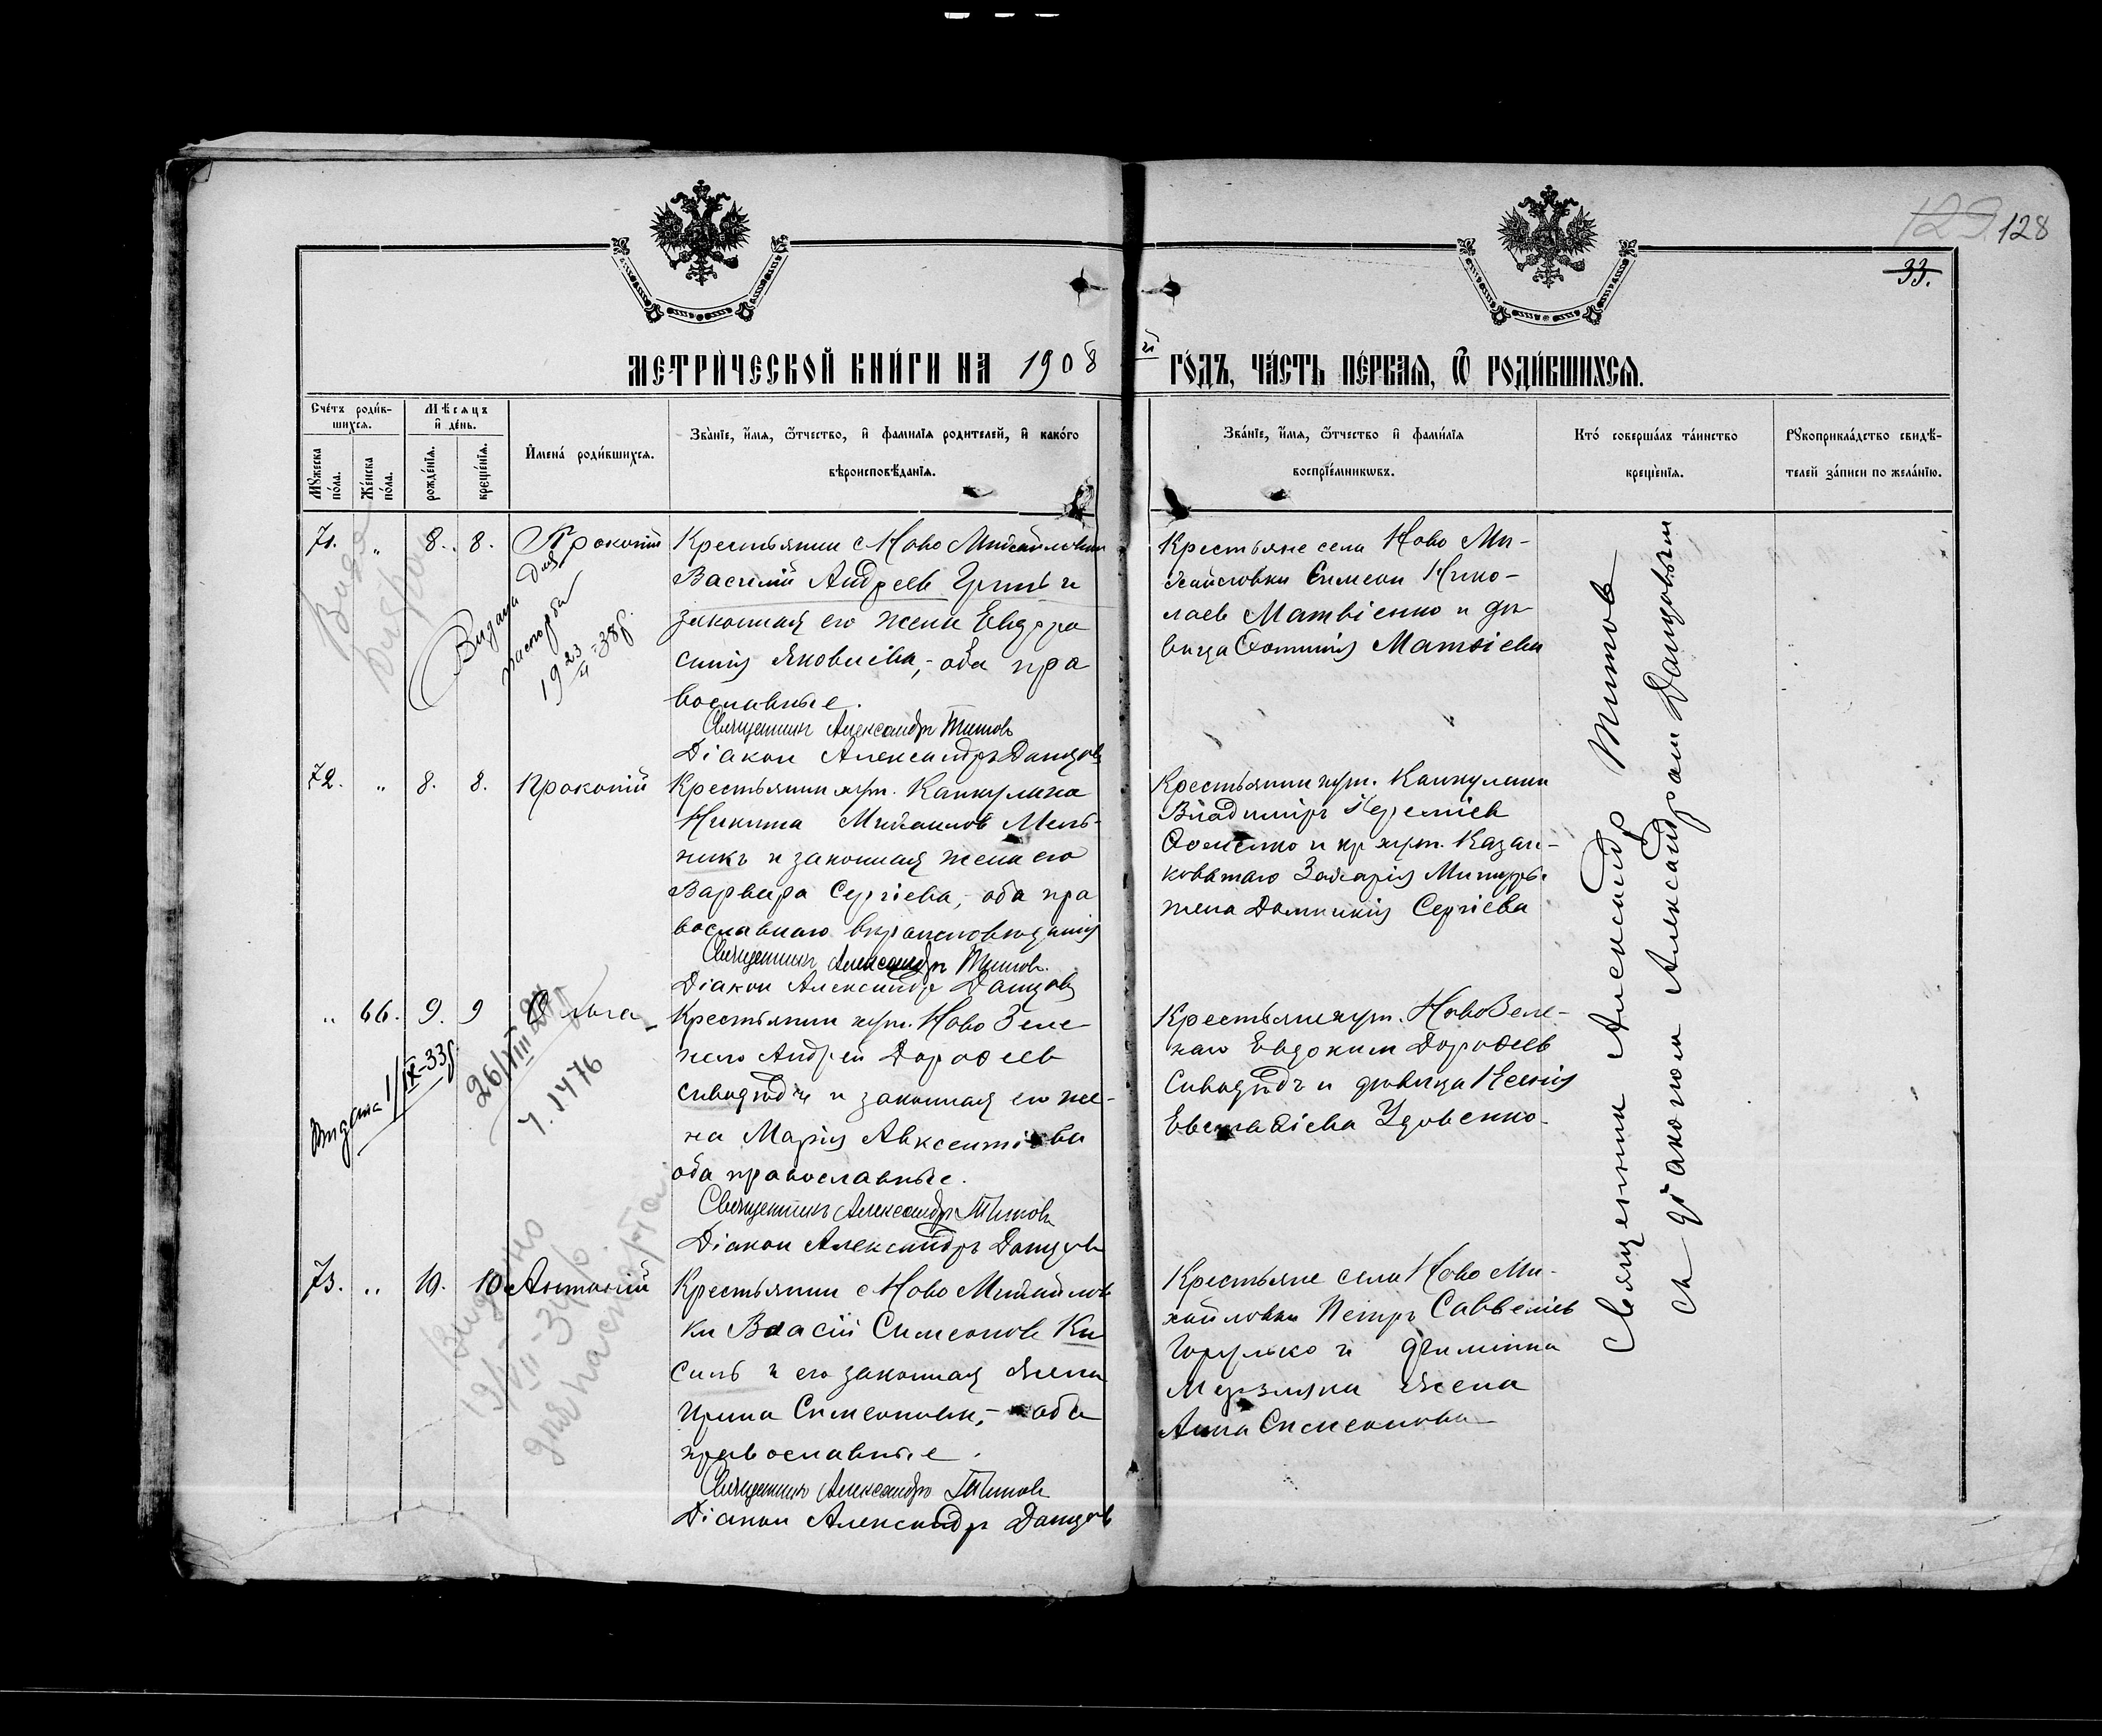 129. 128
33.
МЕТРИ́ЧЕСКОЙ КНИ́ГИ НА 1908 й ГО́ДЪ, ЧА́СТЬ ПЕ́РВАЯ, Ѿ РОДИ́ВШИХСЯ.
Сче́тъ роди́в-
шихся.
Мꙋ́жеска
по́ла.
Же́нска
по́ла.
Мѣ́сяцъ
и҆ де́нь.
рожде́нїя.
креще́нїя.
И҆мена́ роди́вшихся.
Зва́нїе, и҆́мя, ѻ҆́тчество, и҆ фами́лїя роди́телей, и҆ како́гѡ
вѣроисповѣ́данїя.
Зва́нїе, и҆́мя, ѻ҆́тчество и҆ фами́лїя
воспрїе́мникѡвъ.
Кто̀ соверша́лъ та́инство
креще́нїя.
Рꙋкоприкла́дство свидѣ́-
телей за́писи по жела́нїю.
71. " 8. 8. Прокопій
Крестьянин с Ново Михайловки
Василій Андреев Гринь и
законная его жена Евдро
синія Яковлева, - оба пра
вославные.
Священникъ Александръ Титовъ
Діакон Александръ Данцовъ
Крестьяне села Ново Ми-
хайловки Симеон Нико-
лаев Матвіенко и дѣ-
вица Матвіева
Видана для
паспорта
38 г.
72. " 8. 8. Прокопій
Крестьянин хут. Канкулина
Никита Михаилов Мель-
никъ и законная жена его
Варвара Сергіева, - оба пра
вославнаго вѣроисповѣданія
Священникъ Александръ Титовъ.
Діакон Александръ Данцовъ
Крестьянин хут. Канкулина
Владиміръ Іереміев
Ѳоменко и кр хут. Казан-
коватаго Захарія
жена Домникія Сергіева
" 66. 9. 9 Ольга
Крестьянин хут. Ново Зеле
наго Андрей Дороѳеев
Сиводѣдъ и законная его же-
на Марія Авксентіева
оба православные.
Священникъ Александръ Титовъ
Діакон Александръ Данцовъ
Крестьяне хут. Ново Зеле-
наго Евдоким Дороѳеев
Сиводѣдъ и дѣвица Ксенія
Евстаѳіева Удовенко.
Видана 1/IX-33 г.
26/VIII
ч. 1476
73. " 10. 10 Антоній
Крестьянин с Ново Михайлов
ки Власій Симеонов Ки
силь и его законная жена
Ирина Симеоновна, - оба
православные.
Священникъ Александръ Титовъ
Діакон Александръ Данцовъ
Крестьяне села Ново Ми-
хайловки Петръ Саввеліев
и
жена
Анна Симеонова
Видано
для паспорта
Священник Александр Титов
съ діаконом Александром Данцовым